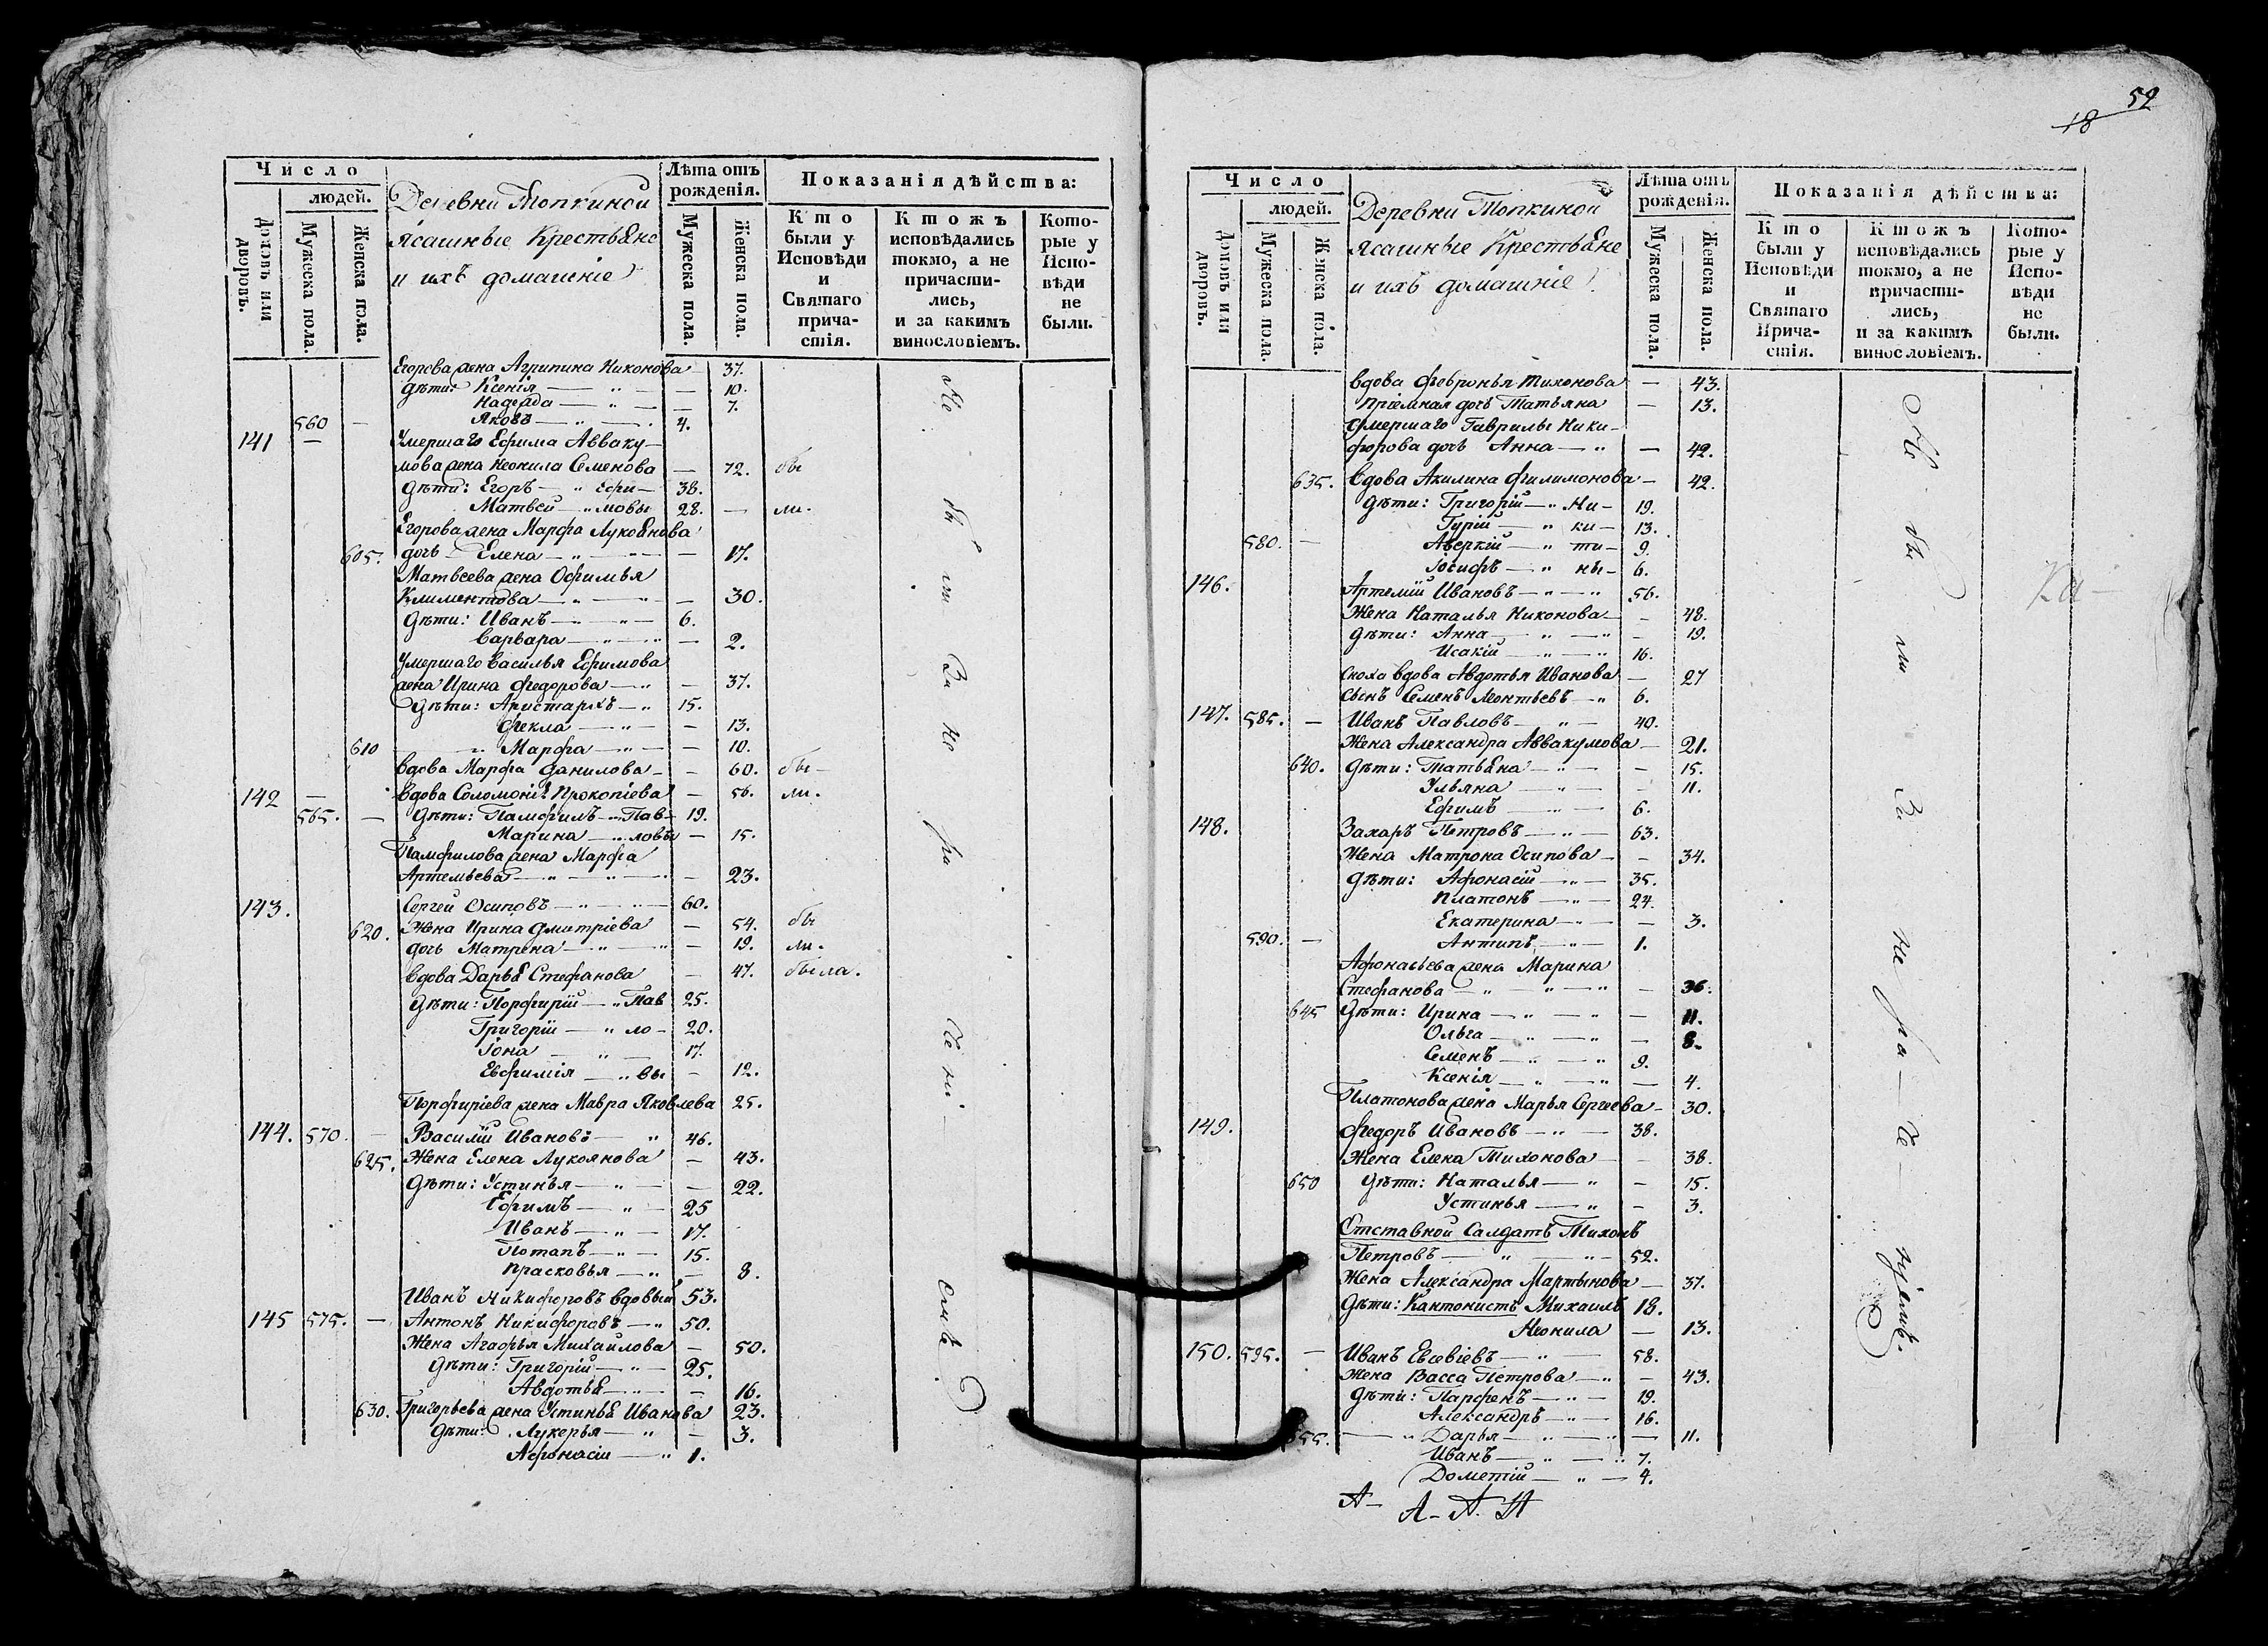 Число
людей.
Домовъ или дворовъ.
Мужеска пола.
Женска пола.
Деревни Топкиной
ясашные Крестьяне
и ихъ домашніе
Лѣта отъ рожденія.
Мужеска пола.
Женска пола.
Показанія дѣйства:
Кто были у Исповѣди и Святаго причастія.
Ктожъ исповѣдались токмо, а не причастились, и за какимъ винословіемъ.
Которые у Исповѣди не были.
Егорова жена Агрипина Никонова 37.
дѣти: Ксенія — „ — — 10.
Надежда — „ — — 7.
560 — Яковъ — „ — 4.
141 — Умершаго Ефима Авваку-
мова жена Неонила Семенова — 72. бы
дѣти: Егоръ — „ Ефи- 38.
Матвей — „ мовы 28. — ли.
Егорова жена Марфа Лукоянова
605. дочь Елена — „ — — 17.
Матвеева жена Офимья
Климентова — „ — „ — 30.
дѣти: Иванъ — „ — 6.
Варвара — „ — — 2.
Умершаго Василья Ефимова
жена Ирина Федорова — „ — 37.
дѣти: Аристархъ — „ 15.
Фекла — „ — — 13.
610 — „ Марфа — „ — — 10.
вдова Марфа Данилова — — 60. бы-
142 — вдова Соломонія Прокопіева — 56. ли.
565. — дѣти: Памфилъ — „ Пав- 19.
Марина — „ ловы — 15.
Памфилова жена Марфа
Артемьева — „ — „ — 23.
143. Сергей Осиповъ — „ — 60.
620. Жена Ирина Дмитріева — 54. бы
дочь Матрена — „ — 19. ли.
вдова Дарья Стефанова — 47. была.
дѣти: Порфирій — „ Пав 25.
Григорій — „ ло- 20.
Іона — „ — 17.
Евфимія — „ вы — 12.
Порфиріева жена Мавра Яковлева 25.
144. 570. — Василій Ивановъ — „ 46.
625. Жена Елена Лукоянова — 43.
дѣти: Устинья — „ — — 22.
Ефимъ — „ — 25
Иванъ — „ — 17.
Потапъ — „ — 15.
Прасковья — „ — 8.
Иванъ Никифоровъ вдовый 53.
145 575. — Антонъ Никифоровъ — „ 50.
Жена Агафья Михайлова — 50.
дѣти: Григорій — „ — 25.
Авдотья — „ — — 16.
630. Григорьева жена Устинья Иванова 23.
дѣти: Лукерья — „ — 3.
Афонасій — „ 1.
Не
бы
ли
За
не
ра
че
ні-
емъ.
52
18
Число
людей.
Домовъ или дворовъ.
Мужеска пола.
Женска пола.
Деревни Топкиной
ясашные Крестьяне
и ихъ домашніе
Лѣта отъ рожденія.
Мужеска пола.
Женска пола.
Показанія дѣйства:
Кто были у Исповѣди и Святаго Причастія.
Ктожъ исповѣдались токмо, а не причастились, и за какимъ винословіемъ.
Которые у Исповѣди не были.
вдова Февронья Тихонова — 43.
Пріемная дочь Татьяна — 13.
Умершаго Гаврилы Ники-
форова дочь Анна — „ — 42.
635. вдова Акилина Филимонова — 42.
дѣти: Григорій — „ Ни- 19.
Гурій — „ ки- 13.
580. — Аверкій — „ ти- 9.
Іосифъ — „ ны- 6.
146. Артемій Ивановъ — „ — 56.
Жена Наталья Никонова — — 48.
дѣти: Анна — „ — — 19.
Исакій — „ — 16.
Сноха вдова Авдотья Иванова — 27
сынъ Семенъ Леонтьевъ — „ 6.
147. 585. — Иванъ Павловъ — „ — 40.
Жена Александра Аввакумова — 21.
640. дѣти: Татьяна — „ — — 15.
Ульяна — „ — — 11.
Ефимъ — „ — 6.
148. Захаръ Петровъ — „ — 63.
Жена Матрона Осипова — — 34.
дѣти: Афонасій — „ — 35.
Платонъ — „ — 24.
Екатерина — „ — — 3.
590. — Антипъ — „ — 1.
Афонасьева жена Марина
Стефанова — „ — „ — 36.
645 дѣти: Ирина — „ — — 11.
Ольга — „ — — 8.
Семенъ — „ — 9.
Ксенія — „ — — 4.
Платонова жена Марья Сергеева — 30.
149. Федоръ Ивановъ — „ — 38.
Жена Елена Тихонова — — 38.
650 дѣти: Наталья — „ — 15.
Устинья — „ — 3.
Отставной Салдатъ Тихонъ
Петровъ — „ — „ — 52.
Жена Александра Мартынова — 37.
дѣти: Кантонистъ Михаилъ 18.
Неонила — 13.
150. 595. — Иванъ Евсевіевъ — „ — 58.
Жена Васса Петрова — „ — 43.
дѣти: Парфенъ — „ — 19.
Александръ — „ — 16.
655. — „ Дарья — „ — — 11.
Иванъ — „ — 7.
Дометій — „ — 4.
Не
бы
ли
За
не
ра-
че-
ніемъ.
Ка-
А- А- А. Н